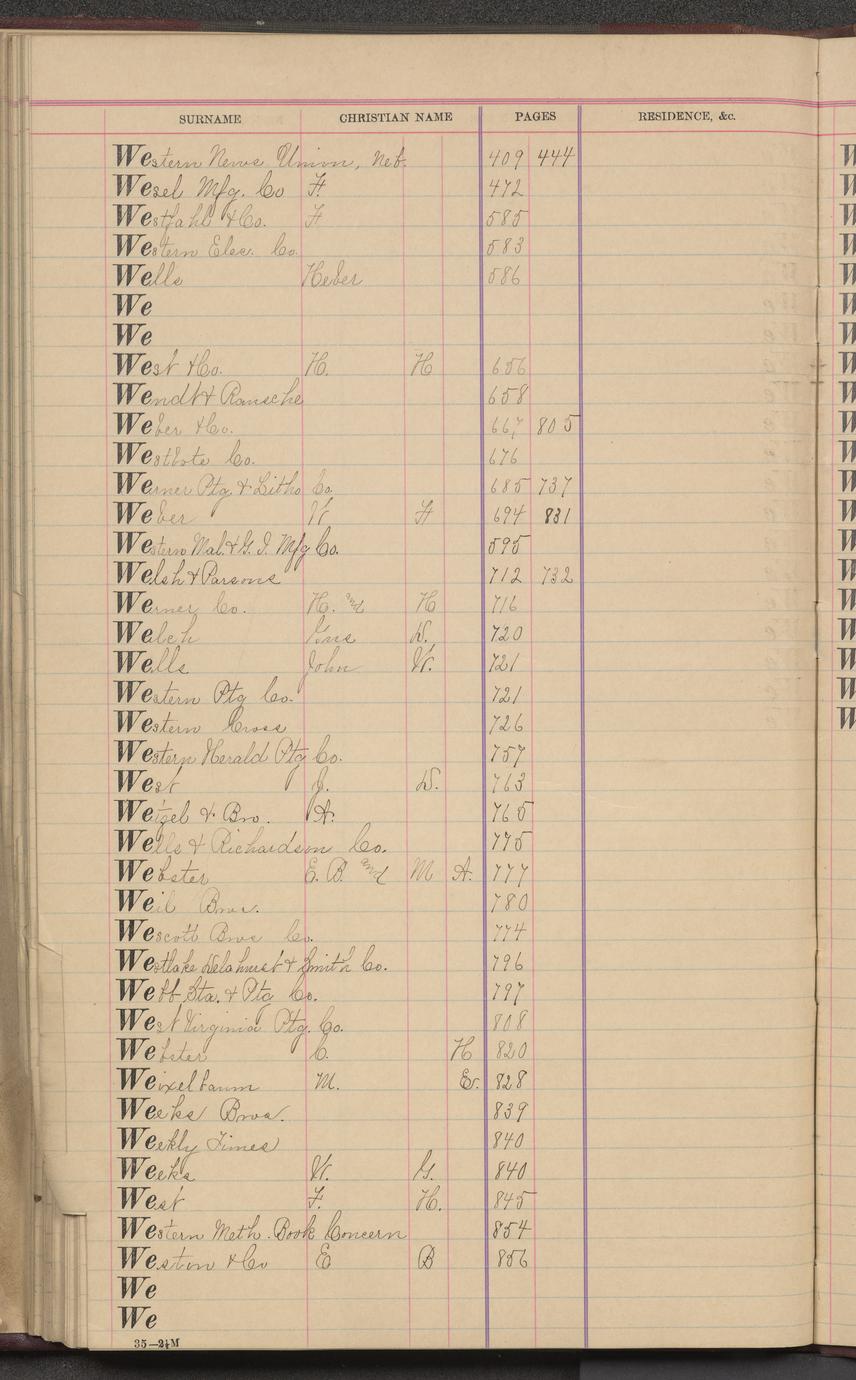 SURNAME CHRISTIAN NAME PAGES RESIDENCE, &c.
Western News Union, Neb. 409 444
Wesel Mfg. Co F. 472
Westfahl & Co. F 585
Western Elec. Co. 583
Wells Heber 586
We
We
West & Co. H. H 656
Wendt & Rausche 658
Weber & Co. 667, 805
Westbote Co. 676
Werner Ptg & Litho Co. 685 737
Weber W F 694 831
Western Mal. & G. I. Mfg Co. 595
Welsh & Parsons 712 732
Werner Co. H. and H 716
Welch Gus W. 720
Wells John W. 721
Western Ptg Co. 721
Western Cross 726
Western Herald Ptg Co. 757
West J. W. 763
Weigel & Bro. A. 765
Wells & Richardson Co. 775
Webster E. B. and M A. 777
Weil Bros. 780
Wescott Bros Co. 774
Westlake & Smith Co. 796
Webb Sta. & Ptg Co. 797
West Virginia Ptg. Co. 808
Webster C. H 820
Weixelbaum M. E. 828
Weeks Bros. 839
Weekly Times 840
Weeks W. G. 840
West F. H. 845
Western Meth. Book Concern 854
Weston & Co E B 856
We
We
35—2½M